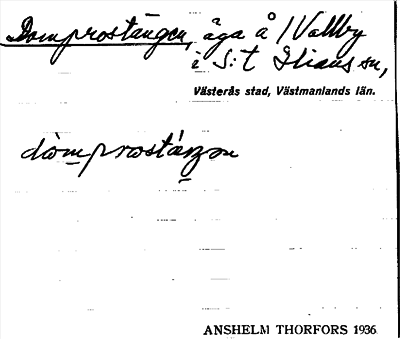 Domprostängen, äga å 1 Vallby
i S:t Ilians sn,
Västerås stad, Västmanlands län.
dòm̲prostáŋ̲ən
ANSHELM THORFORS 1936